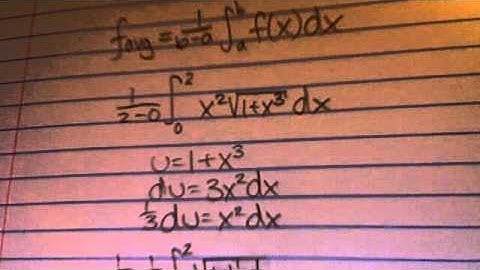 f_avg = 1/(b-a) ∫_a^b f(x)dx
1/(2-0) ∫_0^2 x²√(1+x³) dx
u=1+x³
du=3x²dx
1/3 du=x²dx